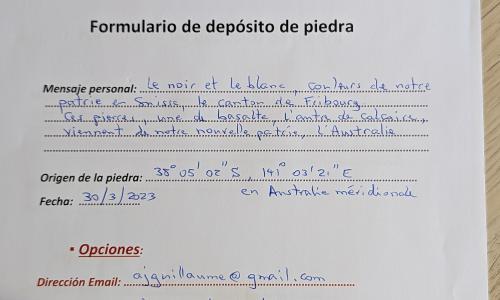 Formulario de depósito de piedra
Mensaje personal: Le noir et le blanc, couleurs de notre
patrie en Suisse, le canton de Fribourg.
Ces pierres, une de basalte, l'autre de calcaire,
viennent de notre nouvelle patrie, l'Australie
Origen de la piedra: 38° 05' 02" S, 141° 03' 21" E
en Australie méridionale
Fecha: 30/3/2023
• Opciones:
Dirección Email: ajguillaume@gmail.com